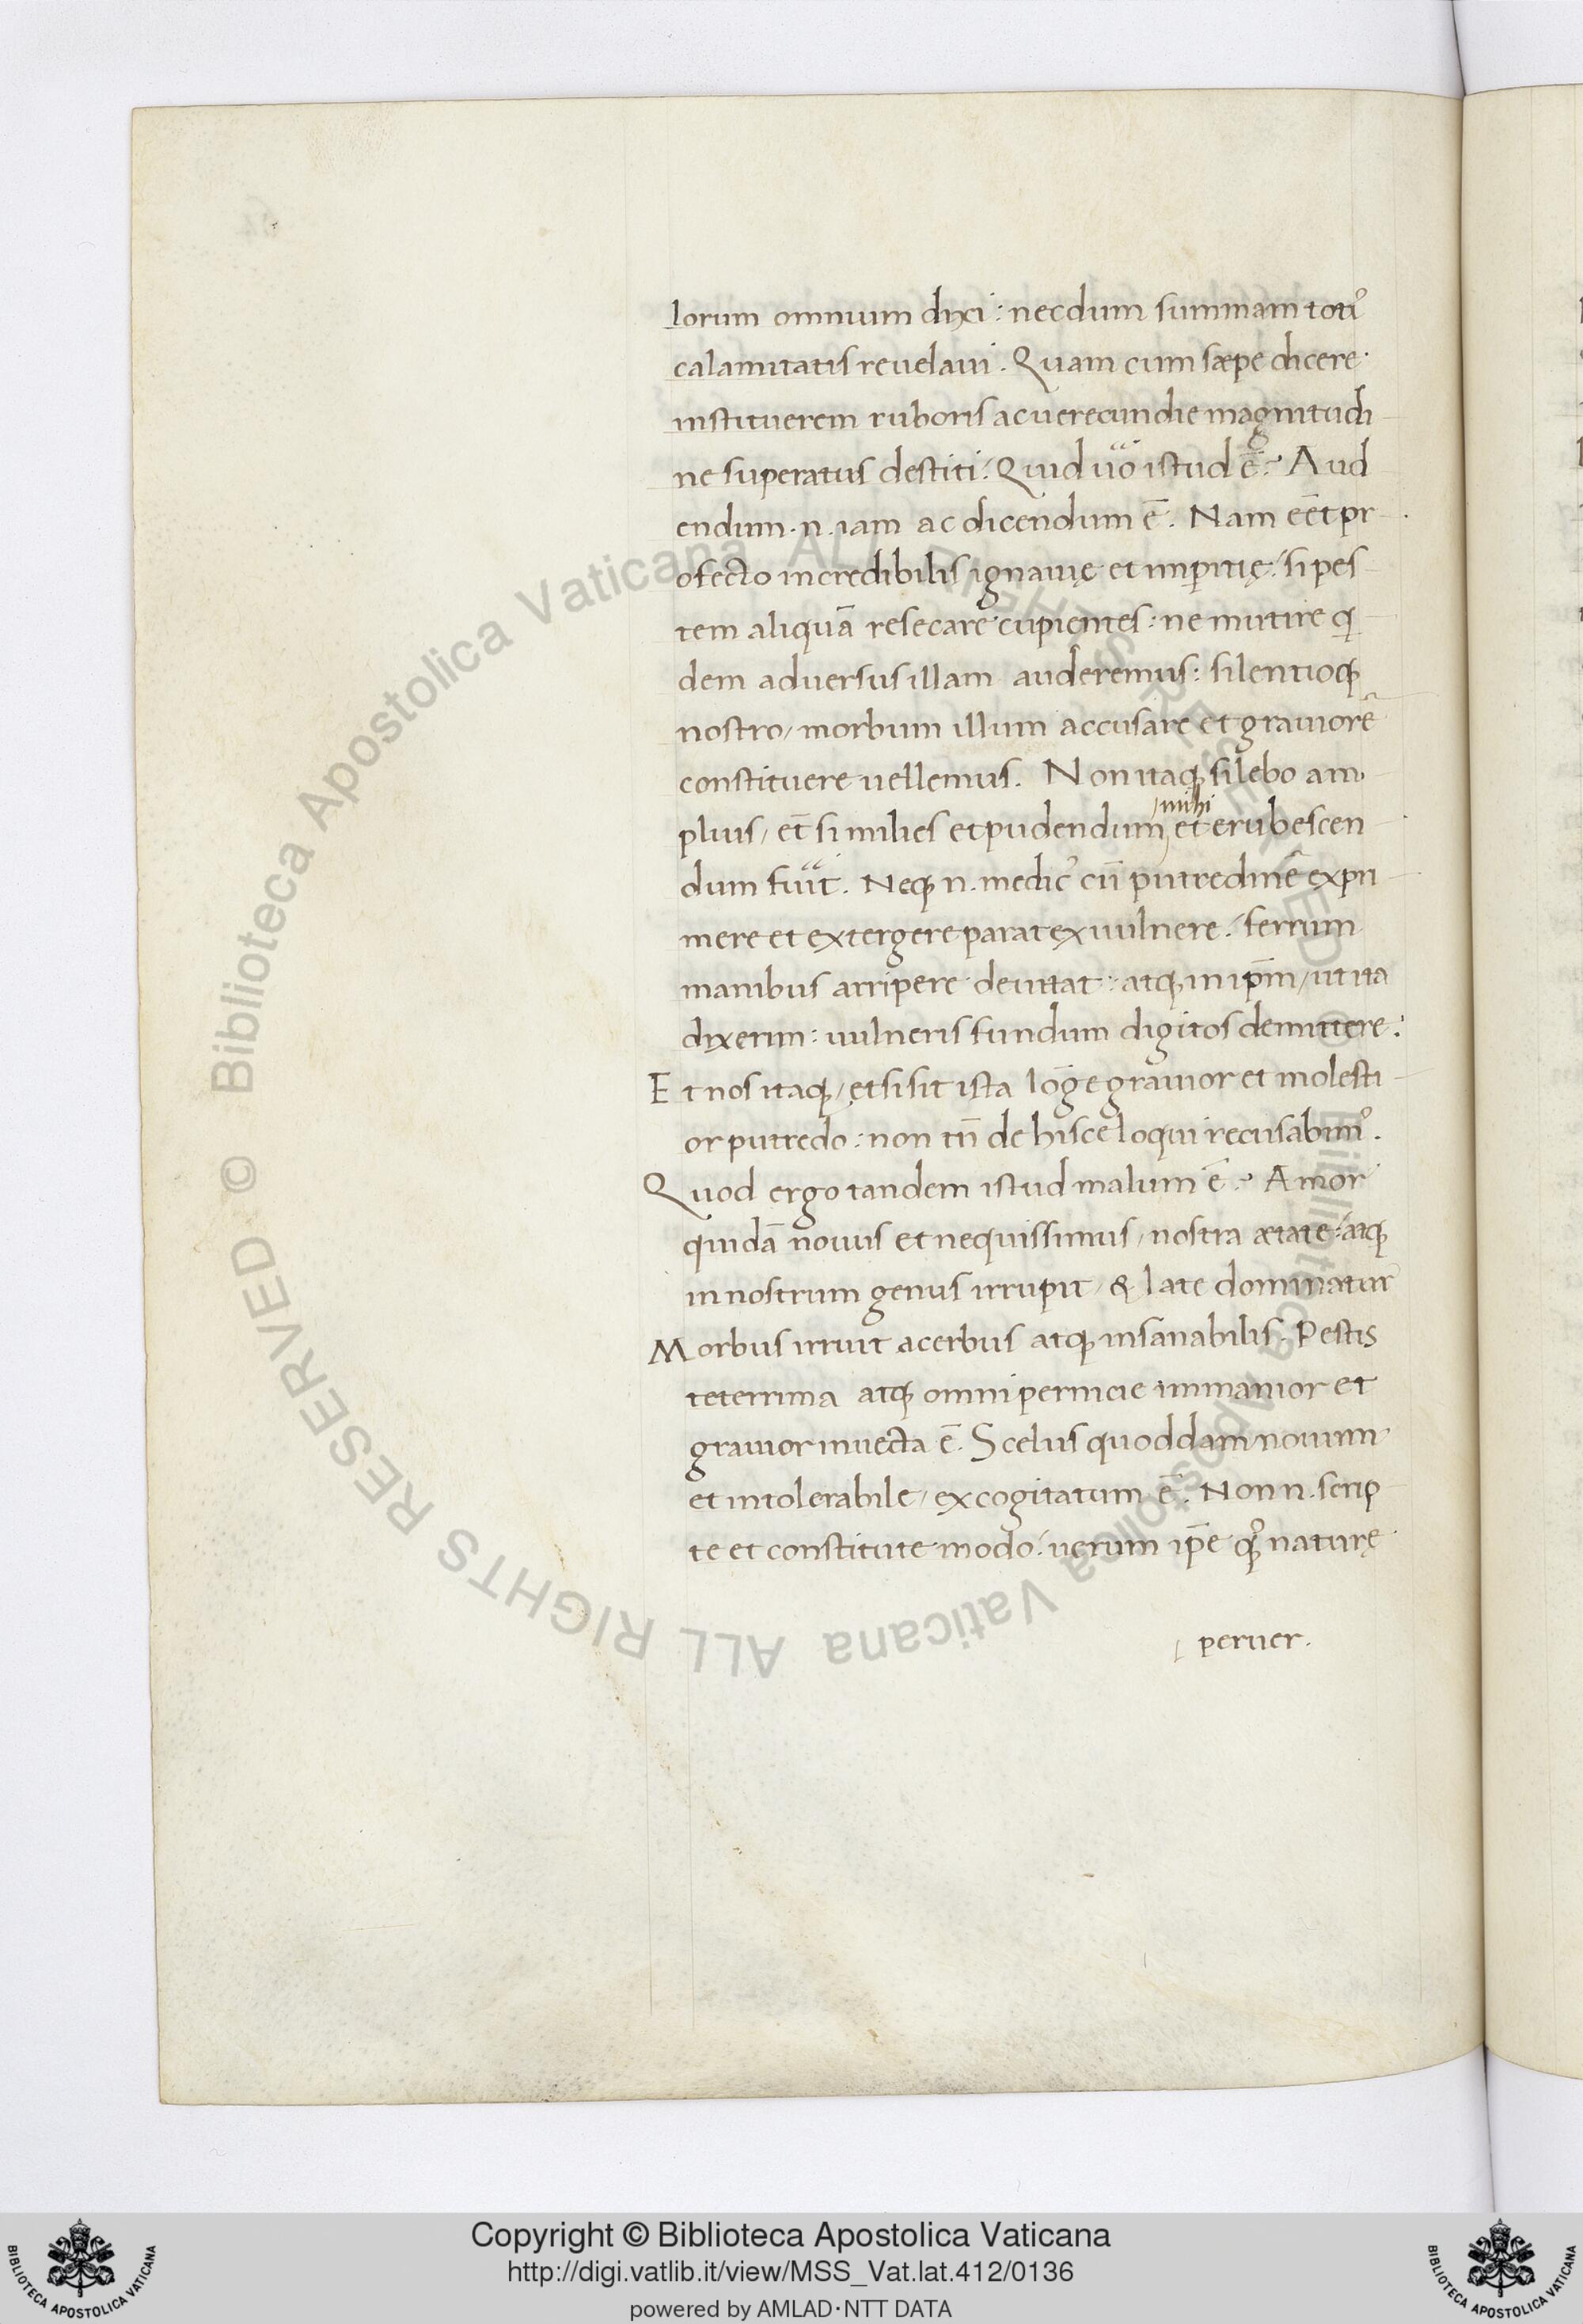 lorum omnium dixi: necdum summam toti᷒
calamitatis reuelaui. Quam cum sæpe dicere
instituerem ruboris ac uerecundie magnitudi
ne superatus destiti. Quid uo̎ istud ē? Aud
endum .n. iam ac dicendum ē. Nam eēt pr
ofecto incredibilis ignauię et imꝑitię: si pes
tem aliquā resecare cupientes: ne mutire q̇
dem aduersus illam auderemus: silentioqꝫ
nostro, morbum illum accusare et grauiorē
constituere uellemus. Non itaqꝫ silebo am
plius, et̄ si milies et pudendum mihi et erubescen
dum fuit. Neqꝫ n. medic᷒ cū putredinē expri
mere et extergere parat ex uulnere, ferrum
manibus arripere deuitat: atqꝫ in ip̄m, ut ita
dixerim: uulneris fundum digitos demittere:
Et nos itaqꝫ, etsi sit ista lōge grauior et molesti
or putredo: non tn̄ de hisce loqui recusabim᷒.
Quod ergo tandem istud malum ē? Amor
quidā nouus et nequissimus, nostra ætate: atqꝫ
in nostrum genus irrupit, & late dominatur
Morbus irruit acerbus atqꝫ insanabilis. Pestis
teterrima atqꝫ omni pernicie immanior et
grauior inuecta ē. Scelus quoddam nouum
et intolerabile, excogitatum ē. Non n. scrip
te et constitute modo: uerum ip̄e qꝫ᷒ naturę
peruer.
Biblioteca Apostolica Vaticana ALL RIGHTS RESERVED © Biblioteca Apostolica Vaticana ALL RIGHTS RESERVED ©
Copyright © Biblioteca Apostolica Vaticana
http://digi.vatlib.it/view/MSS_Vat.lat.412/0136
powered by AMLAD·NTT DATA
BIBLIOTECA APOSTOLICA VATICANA
BIBLIOTECA APOSTOLICA VATICANA